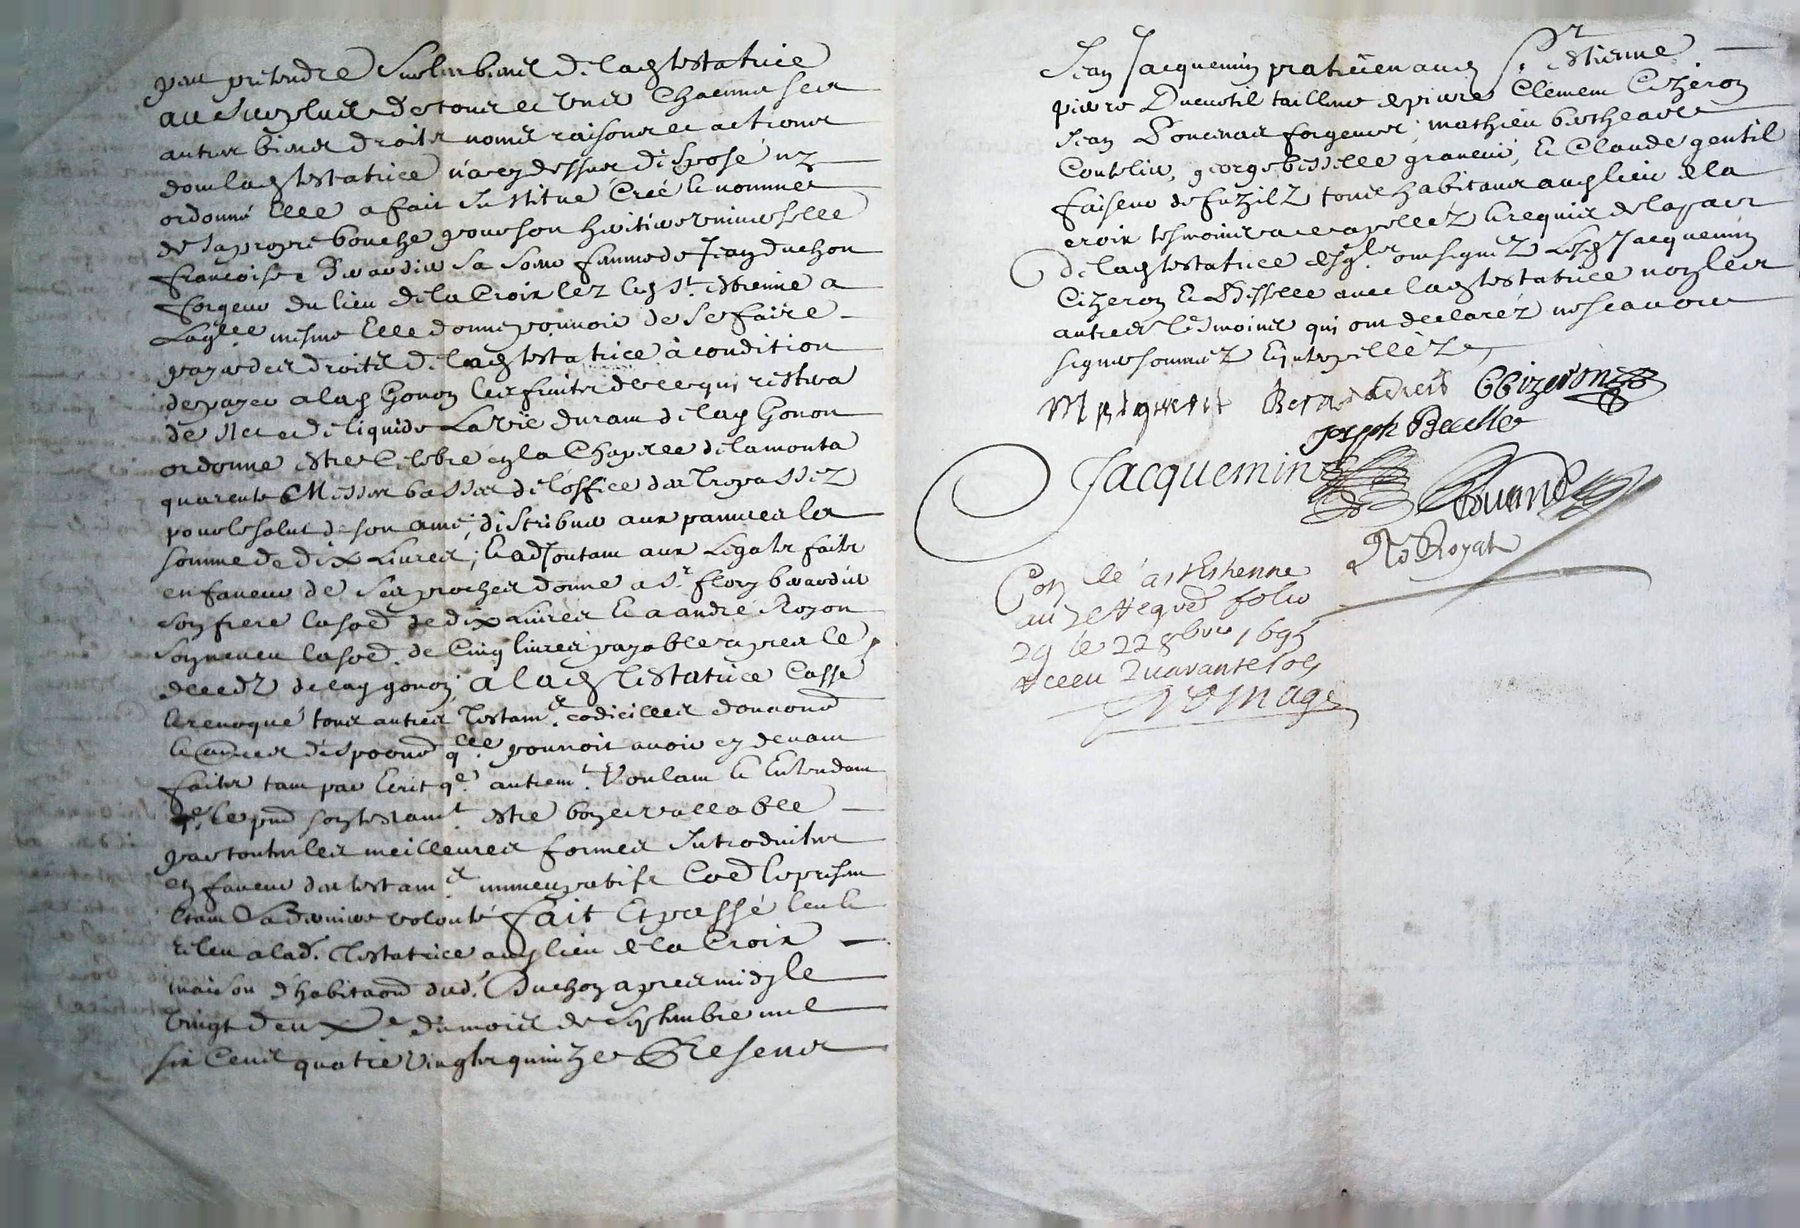 peut pretendre sur les biens de lad testatrice
au surplus de tous et uns chacuns ses
autres biens droits noms raisons et actions
dont lad testatrice n'a cy dessus disposé ny
ordonné elle a fait institué créé et nommé
de sa propre bouche pour son heritiere universelle
françoise Berardier sa soeur femme de Jean duchon
forgeur du lieu de la Croix lez led St estienne a
laqlle mesme elle donne pouvoir de se faire
payer des droits de lad testatrice à condition
de payer a lad Gonon les fruits de ce qui restera
de net et de liquide la vie durant de lad Gonon
ordonne estre celebré en la Chapelle de la monta
quarente Messes basses de l'office des trepassez
pour le salut de son ame, distribuer aux pauvres la
somme de dix livres, et adjoutant aux legats faits
en faveur de ses proches donne a Sr flory berardier
son frere la so'e de dix livres et a andré Royon
son neveu la so'e de cinq livres payables apres le
deceds de lad gonon, a lad testatrice cassé
et revoqué tous autres testam.s codicilles donaons
et autres dispoons qlle pourroit avoir cy devant
faits tant par ecrit q.e autrem.t voulant et entendant
q.e le pnt son testam.t estre bon et vallable
par toutes les meilleures formes introduites
en faveur des testam.s nuncupatifs
estant sa derniere volonté fait et passé leu et
releu a lad. testatrice aud lieu de la Croix
maison d'habitaon dud. Duchon apres midy le
vingt deuxe du mois de septembre mil
six cens quatre vingts quinze Presens
Jean Jacquemin praticien aud St. estienne
pierre Ducretil tailleur de pierre Clement Cizeron
Jean Poncenas forgeur, mathieu
Coutelier, george besselle graveur, et Claude gentil
faiseur de fuzilz tous habitans aud lieu de la
croix tesmoins appellez et requis de la part
de lad testatrice desqls ont signez lesd Jacquemin
Cizeron et Besselle avec lad testatrice non les
autres tesmoins qui ont declarez ne scavoir
signer sommez et interpellez
C Cizeron
Joseph Beselle
Jacquemin
No Royal
Con.lé a st Estienne
au 7e Reg.re folio
29 le 22 8bre 1695
receu quarante sols